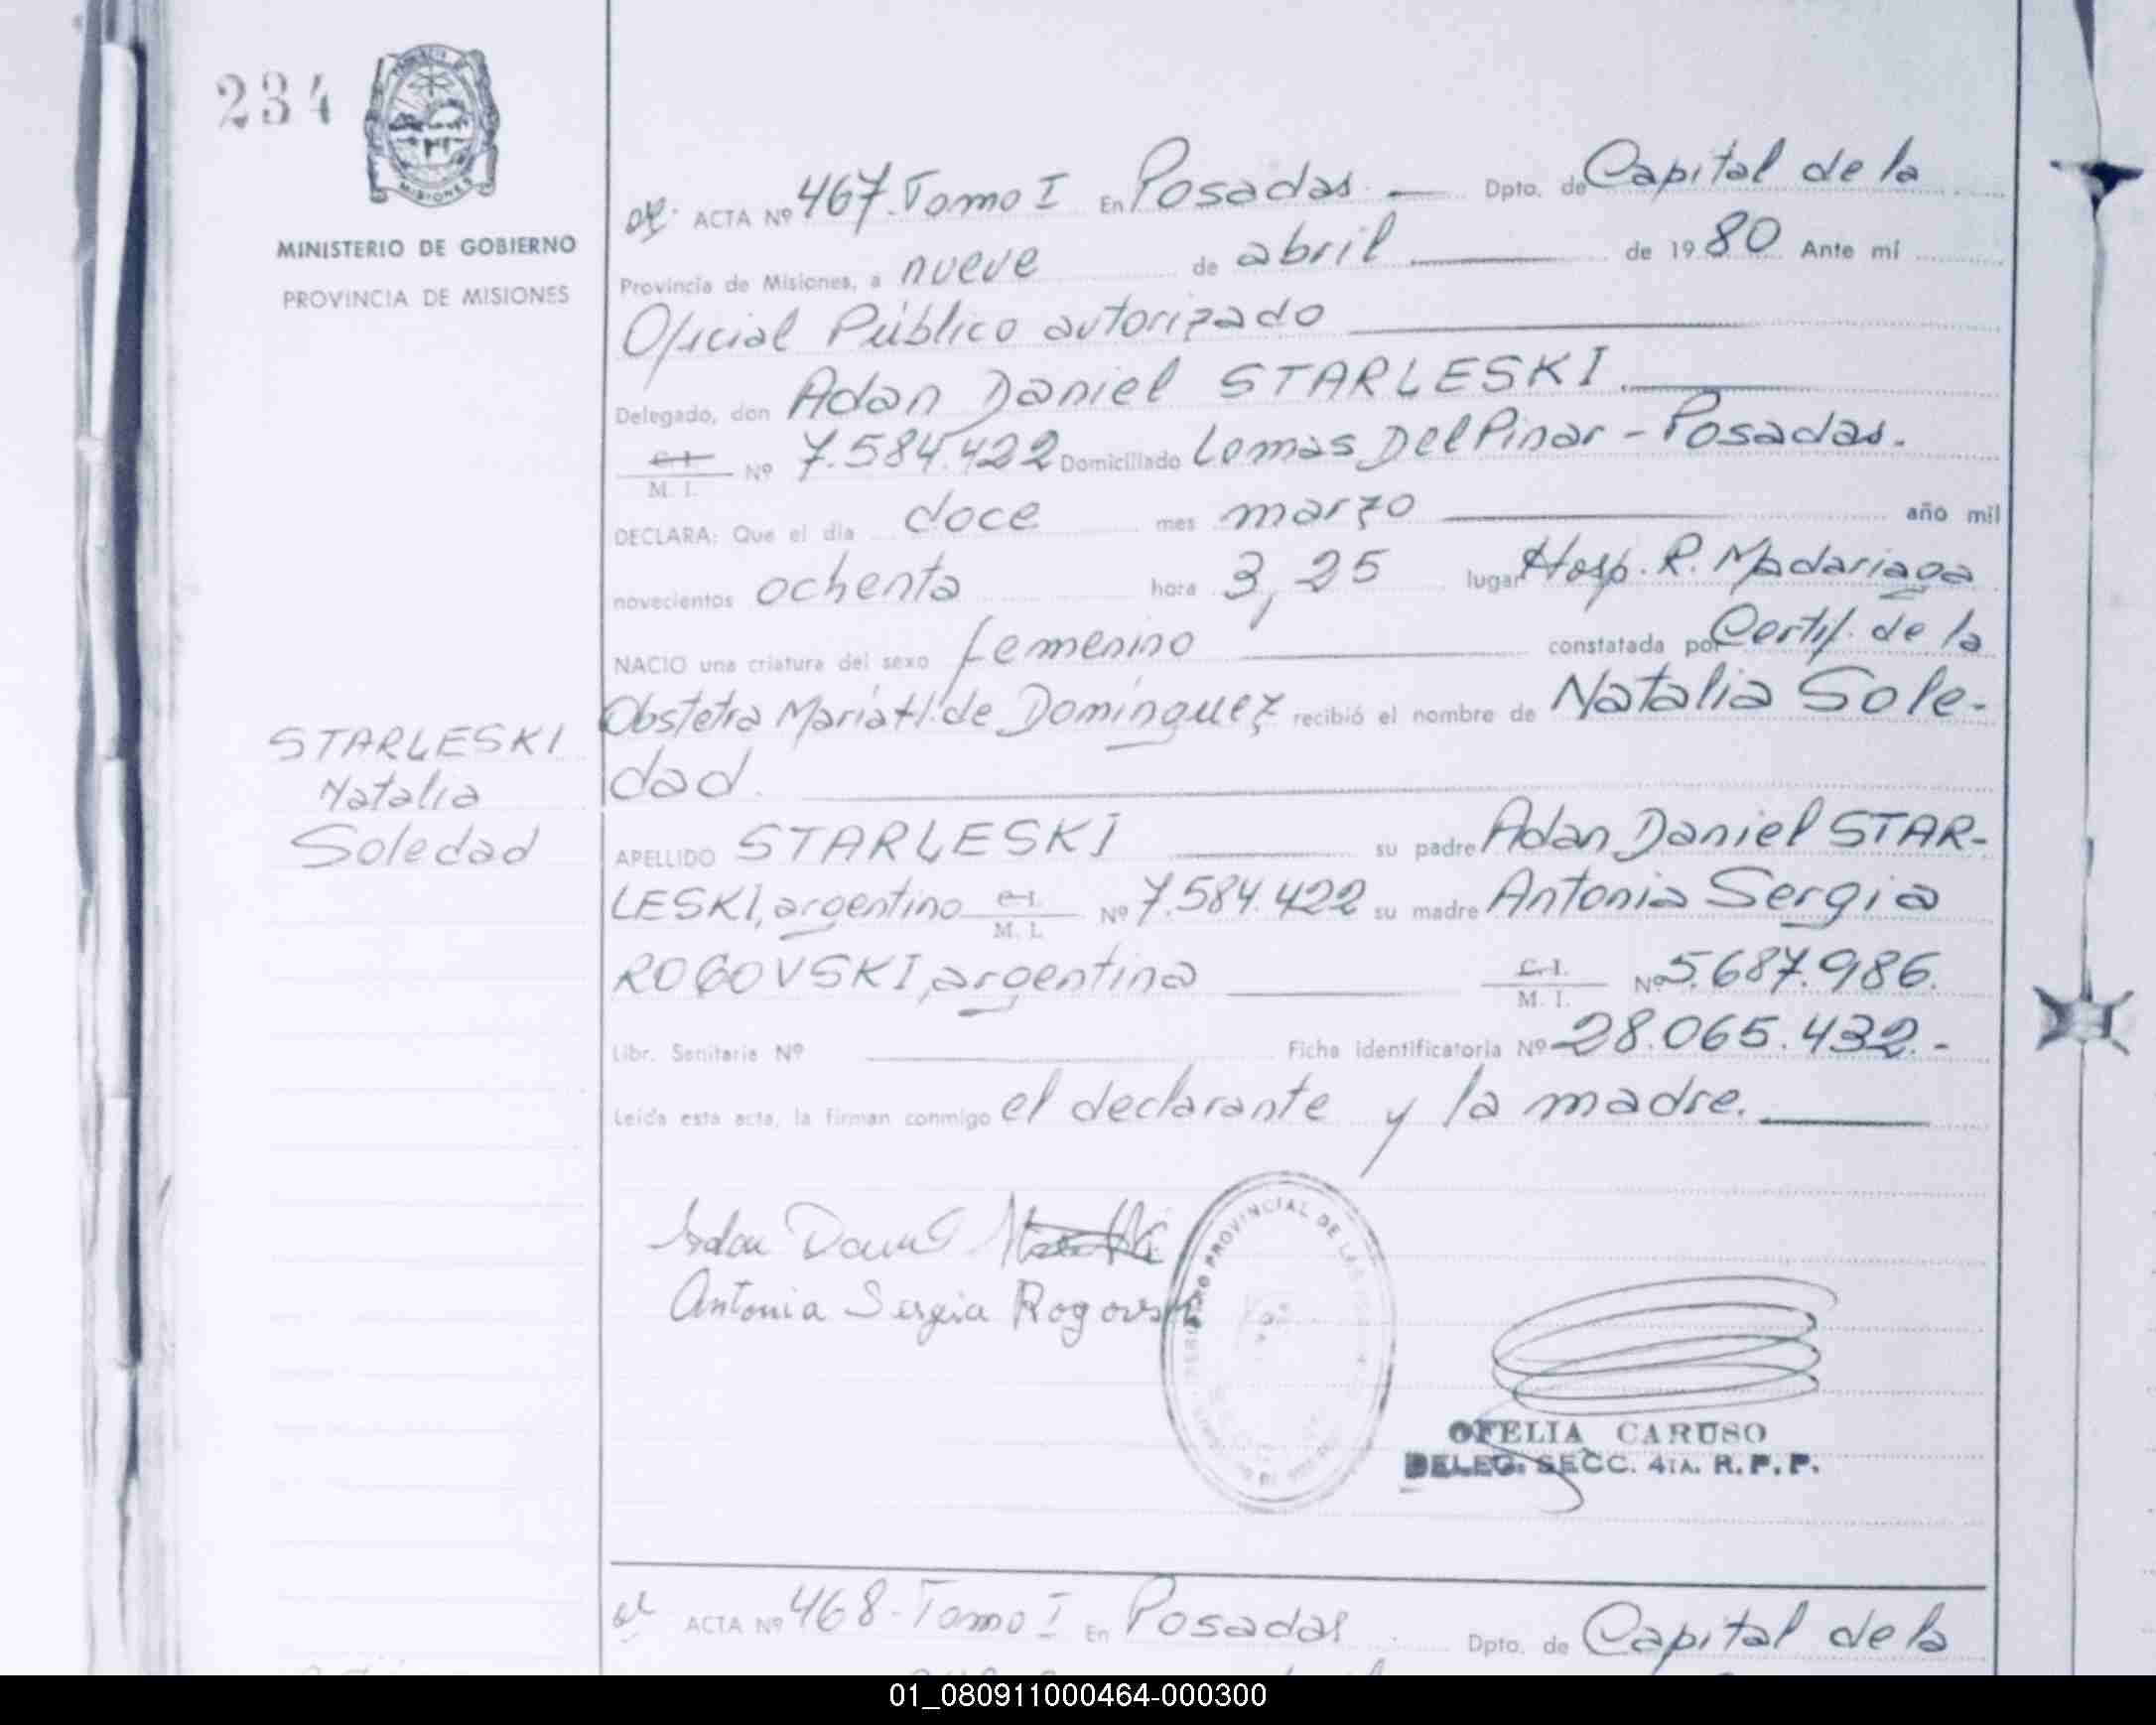 234
MISIONES
MINISTERIO DE GOBIERNO
PROVINCIA DE MISIONES
ACTA Nº 467. Tomo I En Posadas. — Dpto. de Capital de la
Provincia de Misiones, a nueve de abril de 1980 Ante mí
Oficial Público autorizado
Delegado, don Adan Daniel STARLESKI.
C. I.
M. I. Nº 7.584.422 Domiciliado Lomas Del Pinar - Posadas.
DECLARA: Que el día doce mes marzo año mil
novecientos ochenta hora 3,25 lugar Hosp. R. Madariaga
NACIO una criatura del sexo femenino constatada por Certif. de la
Obstetra María H. de Domínguez recibió el nombre de Natalia Sole-
dad.
STARLESKI
Natalia
Soledad
APELLIDO STARLESKI su padre Adan Daniel STAR-
LESKI, argentino C. I. M. I. Nº 7.584.422 su madre Antonia Sergia
ROGOVSKI, argentina C. I. M. I. Nº 5.687.986.
Libr. Sanitaria Nº Ficha identificatoria Nº 28.065.432.-
Leída esta acta, la firman conmigo el declarante y la madre.
Adan Daniel
Antonia Sergia Rogovski
PROVINCIAL DE LAS
OFELIA CARUSO
DELEG. SECC. 4TA. R. P. P.
ACTA Nº 468- Tomo I En Posadas Dpto. de Capital de la
01_080911000464-000300